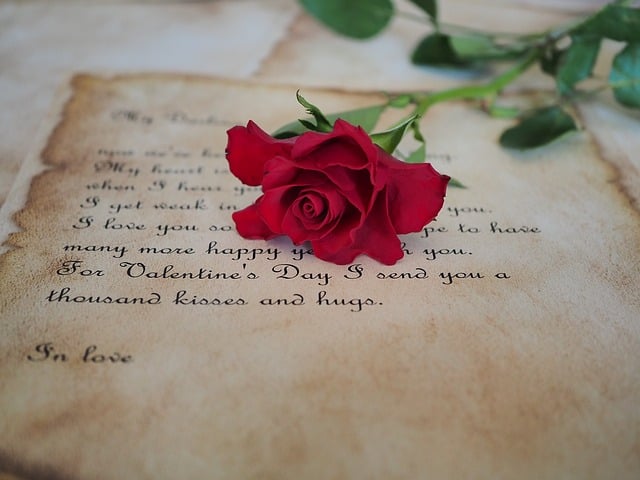 My
now we've
My heart
when I hear
I get weak in you.
I love you so to have
many more happy you.
For Valentine's Day I send you a
thousand kisses and hugs.
In love